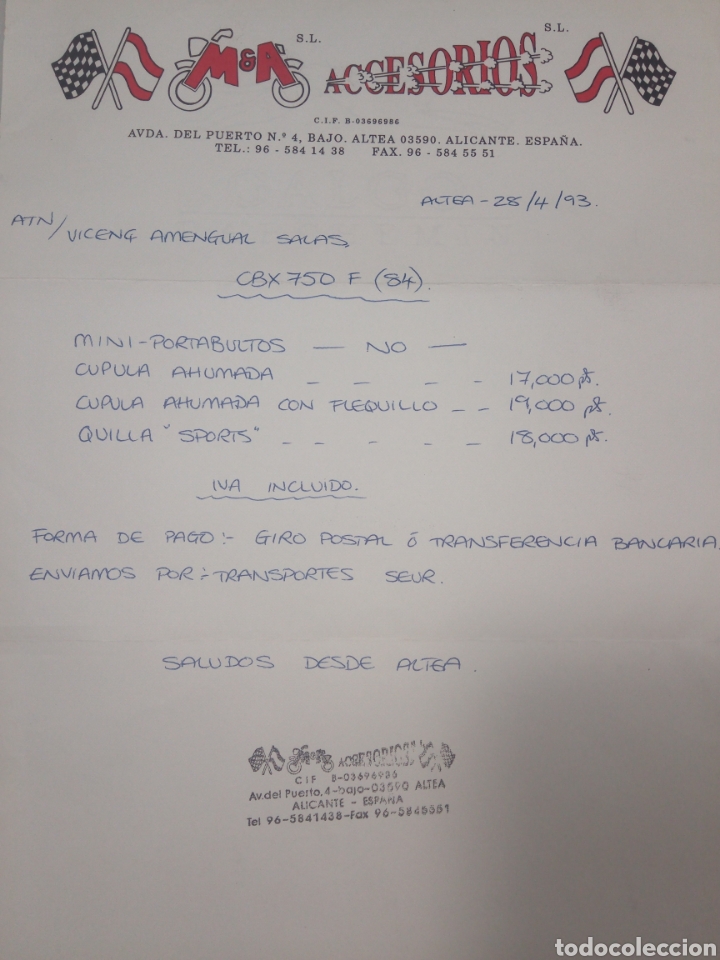 M&A S.L. ACCESORIOS S.L.
C.I.F. B-03696986
AVDA. DEL PUERTO N.º 4, BAJO. ALTEA 03590. ALICANTE. ESPAÑA.
TEL.: 96 - 584 14 38 FAX. 96 - 584 55 51
ALTEA - 28/4/93.
ATN/ VICENÇ AMENGUAL SALAS,
CBX 750 F (84).
MINI-PORTABULTOS — NO —
CUPULA AHUMADA - - - - 17,000 pts.
CUPULA AHUMADA CON FLEQUILLO - - 19,000 pts.
QUILLA "SPORTS" - - - - - 18,000 pts.
IVA INCLUIDO.
FORMA DE PAGO:- GIRO POSTAL ó TRANSFERENCIA BANCARIA.
ENVIAMOS POR:- TRANSPORTES SEUR.
SALUDOS DESDE ALTEA.
M&A ACCESORIOS
CIF B-03696986
Av.del Puerto,4-bajo-03590 ALTEA
ALICANTE - ESPAÑA
Tel 96-5841438-Fax 96-5845551
todocoleccion